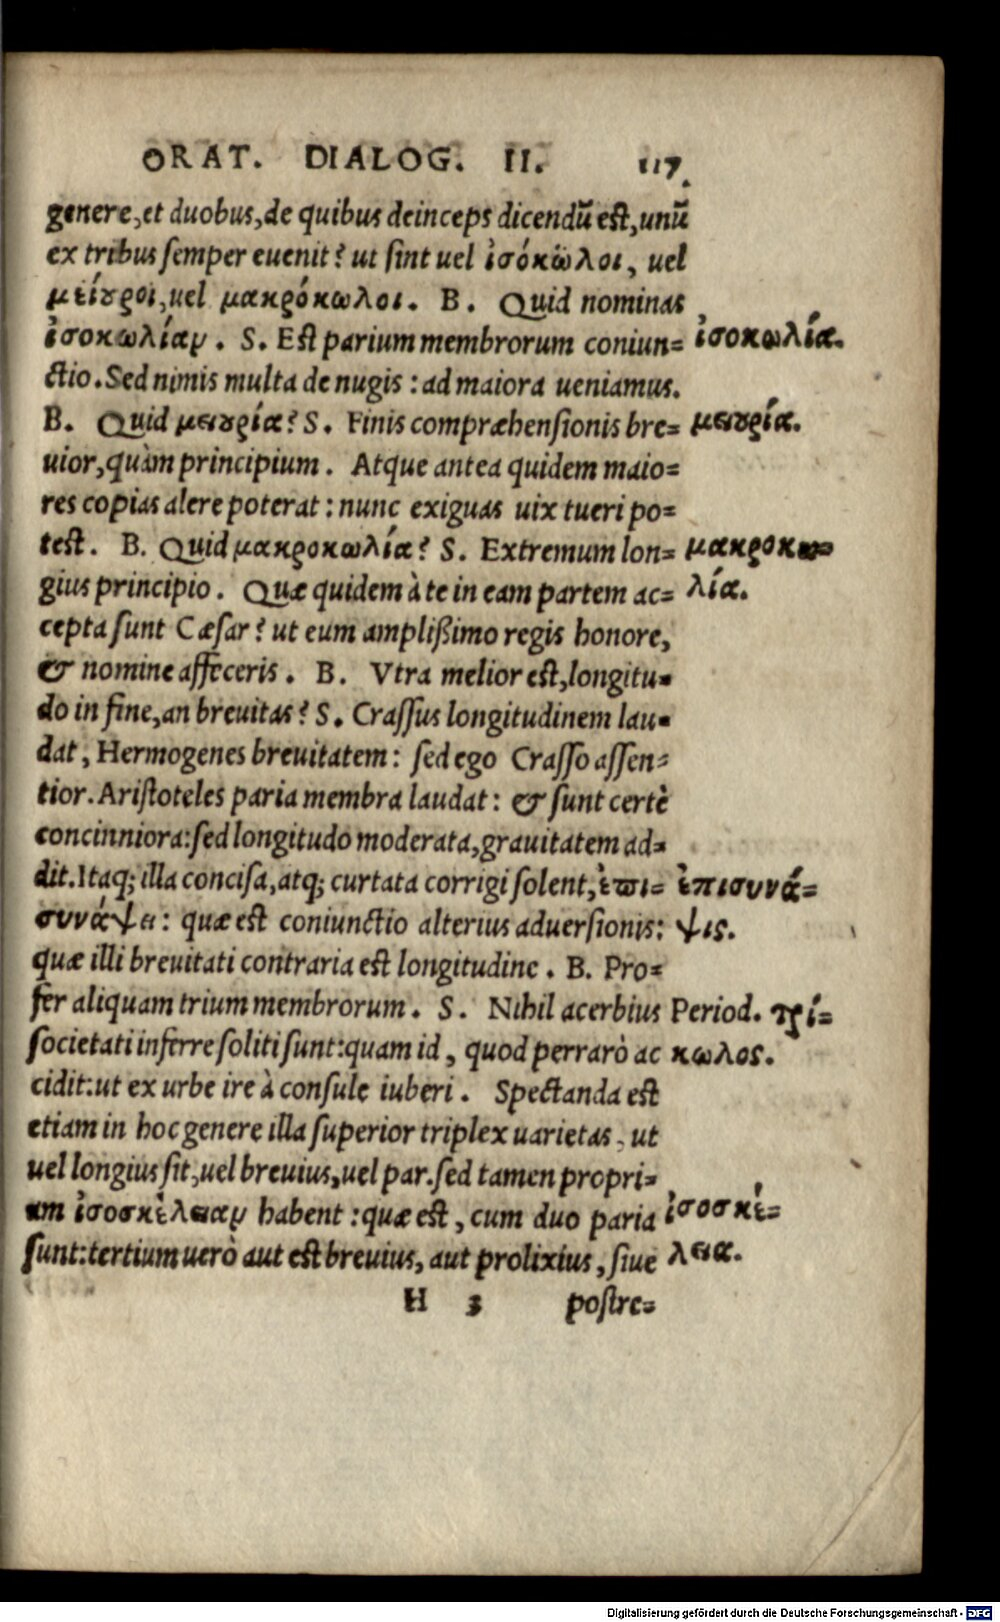 ORAT. DIALOG. II. 117
genere, et duobus, de quibus deinceps dicendũ est, unũ
ex tribus semper euenit? ut sint uel ἰσόκωλοι, uel
μείουροι, uel μακρόκωλοι. B. Quid nominas
ἰσοκωλίαν. S. Est parium membrorum coniun= ἰσοκωλία.
ctio. Sed nimis multa de nugis: ad maiora ueniamus.
B. Quid μειουρία? S. Finis compræhensionis bre= μειουρία.
uior, quàm principium. Atque antea quidem maio=
res copias alere poterat: nunc exiguas uix tueri po=
test. B. Quid μακροκωλία? S. Extremum lon= μακροκω=
gius principio. Quæ quidem à te in eam partem ac= λία.
cepta sunt Cæsar? ut eum amplißimo regis honore,
& nomine affeceris. B. Vtra melior est, longitu=
do in fine, an breuitas? S. Crassus longitudinem lau=
dat, Hermogenes breuitatem: sed ego Crasso assen=
tior. Aristoteles paria membra laudat: & sunt certè
concinniora: sed longitudo moderata, grauitatem ad=
dit. Itaq; illa concisa, atq; curtata corrigi solent, ἐπι= ἐπισυνά=
συνάψει: quæ est coniunctio alterius aduersionis: ψις.
quæ illi breuitati contraria est longitudine. B. Pro=
fer aliquam trium membrorum. S. Nihil acerbius Period. τρί=
societati inferre soliti sunt: quam id, quod perrarò ac κωλος.
cidit: ut ex urbe ire à consule iuberi. Spectanda est
etiam in hoc genere illa superior triplex uarietas, ut
uel longius sit, uel breuius, uel par. sed tamen propri=
um ἰσοσκέλειαν habent: quæ est, cum duo paria ἰσοσκέ=
sunt: tertium uerò aut est breuius, aut prolixius, siue λεια.
H 3 postre=
Digitalisierung gefördert durch die Deutsche Forschungsgemeinschaft - DFG